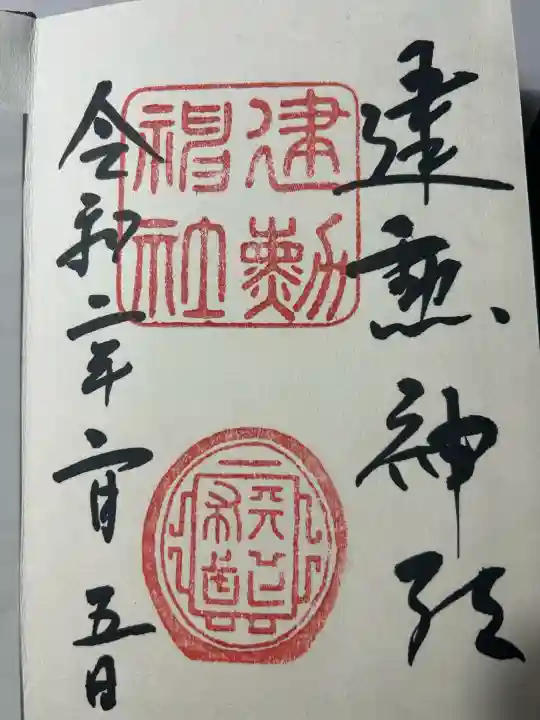 建勲神社
建勳
神社
令和二年月五日